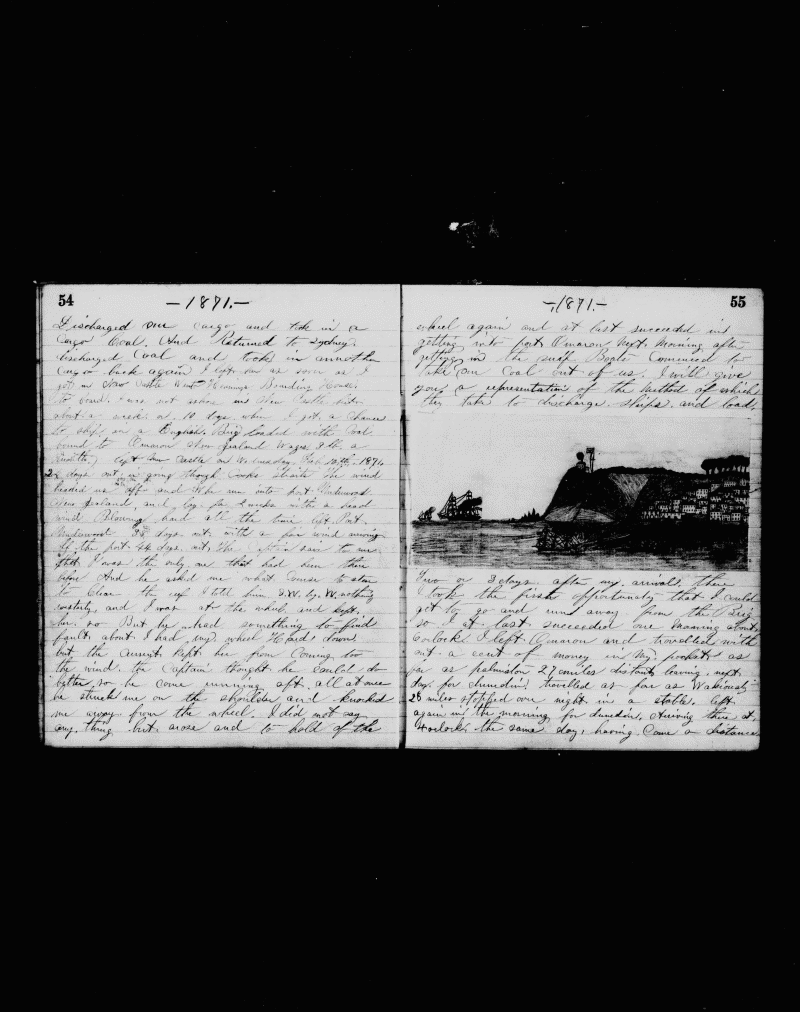 54
-1871.-
Discharged our cargo and took in a
Cargo Coal. And Returned to Sydney.
discharged Coal and took in annother
Cargo back again I left her as soon as I
got in New Castle Went Boarding House.
to board. I was not ashore in New Castle but
about a week or 10 days. when I got a chance
to ship in a English Brig loaded with Coal
bound to New Zealand Wages a
Month left New Castle on Wednesday 1871
2 days out in going though Cooks Straits the wind
headed us off and took us into port
New Zealand, and lay for with a head
wind Blowing hard at the time left Port
days out with a fair wind
of the port days out, The Captain to me
that I was the only one that had been there
before And he asked me what Course to steer
to clear the reef I told him S.W. by. W. nothing
westerly. and I was at the wheel and kept.
her. so But he had something to find
fault. about I had my. wheel Hard down
but the current kept her from Coming too
the wind. the Captain thought he could do
better, so he come running aft. all at once
he struck me on the shoulder and knocked
me away from the wheel. I did not say
any. thing but. arose and to hold of the
55
-1871-
wheel again and at last succeeded in
getting into port Omaron Next Morning after
getting in the surf Boats Commenced to
take our Coal out of us. I will give
you a representation of the Method of which
they take to discharge. Ships and load.
Two or 3 days. after my. arrival there
I took the first opportunaty that I could
get to go and run away from the Brig
so I at last succeeded one morning about
oclock I left Omaron and travelled with
out a cent of money in my pockets as
far as palmston 27 miles distant leaving. next
day. for Dunedin! travelled as far as
28 miles stopped over night in a stable. left
again in the morning for Dunedin, Arriving there at
4 oclock the same day, having Come a distance